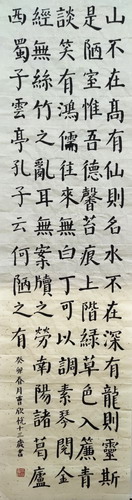 山不在高有仙則名水不在深有龍則靈斯
是陋室惟吾德馨苔痕上階綠草色入簾青
談笑有鴻儒往來無白丁可以調素琴閱金
經無絲竹之亂耳無案牘之勞南陽諸葛廬
西蜀子雲亭孔子云何陋之有
癸卯春月十三歲書